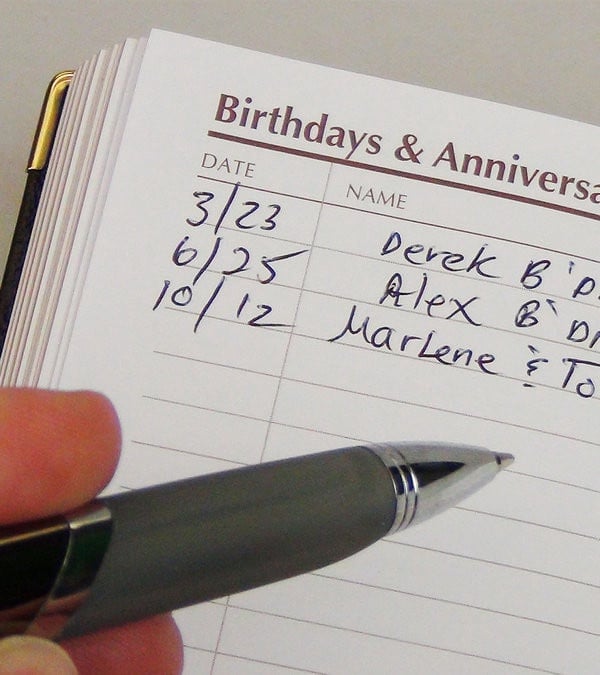 Birthdays & Anniversa
DATE NAME
3/23 Derek B'D
6/25 Alex B'D
10/12 Marlene & To